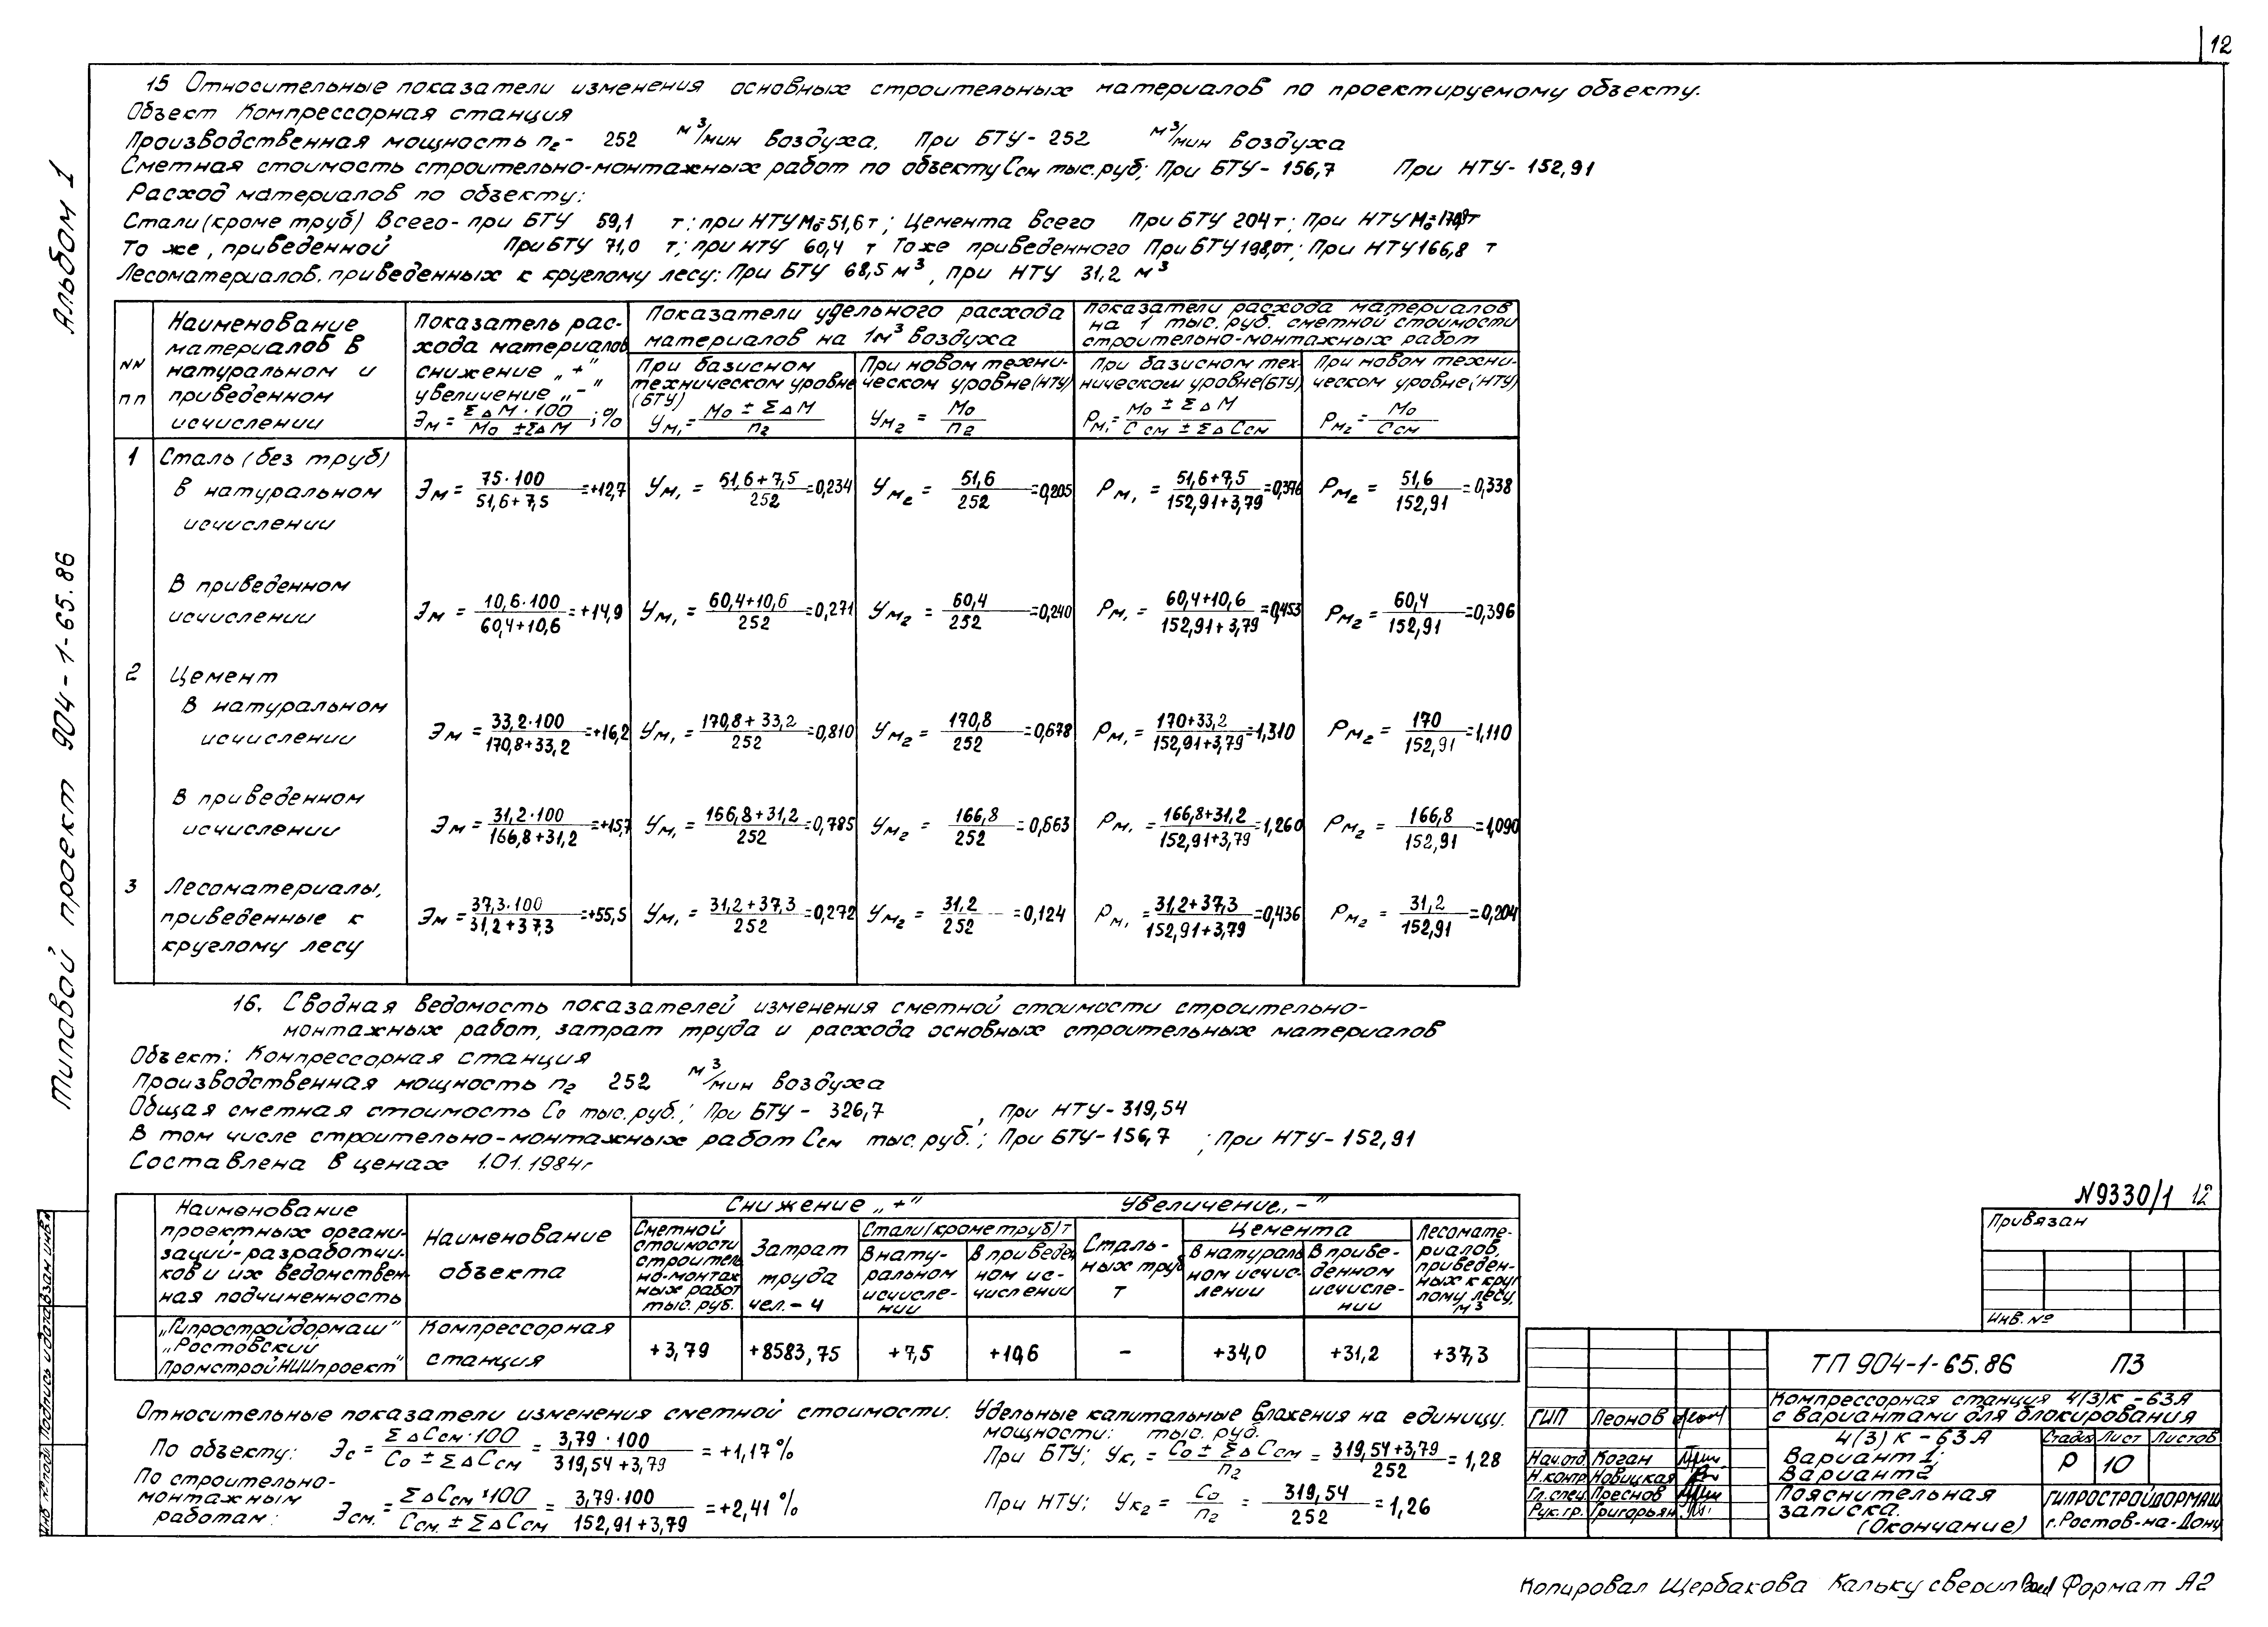 12
15 Относительные показатели изменения основных строительных материалов по проектируемому объекту.
Объект Компрессорная станция
Производственная мощность п2- 252 м³/мин воздуха. При БТУ-252 м³/мин воздуха
Сметная стоимость строительно-монтажных работ по объекту Ссм тыс.руб; При БТУ-156,7 При НТУ-152,91
Расход материалов по объекту:
Стали (кроме труб) Всего-при БТУ 59,1 т; при НТУ Мо=51,6т; Цемента Всего При БТУ 204т; При НТУ
То же, приведенной При БТУ 71,0 т; при НТУ 60,4 т То же приведенного При БТУ 198,0т; При НТУ 166,8 т
Лесоматериалов, приведенных к круглому лесу: При БТУ 68,5 м³, при НТУ 31,2 м³
NN пп
Наименование материалов в натуральном и приведенном исчислении
Показатель расхода материалов снижение „+" увеличение „-" Эм = ΣΔМ·100 / Мо ±ΣΔМ ;%
Показатели удельного расхода материалов на 1м³ воздуха
При базисном техническом уровне (БТУ) Ум1 = Мо ± ΣΔМ / п2
При новом техническом уровне (НТУ) Ум2 = Мо / п2
Показатели расхода материалов на 1 тыс. руб. сметной стоимости строительно-монтажных работ
При базисном техническом уровне (БТУ) Рм1 = Мо ± ΣΔМ / Ссм ± ΣΔСсм
При новом техническом уровне (НТУ) Рм2 = Мо / Ссм
1 Сталь (без труб)
в натуральном исчислении Эм = 75·100 / 51,6+7,5 =+12,7 Ум1 = 51,6+7,5 / 252 =0,234 Ум2 = 51,6 / 252 =0,205 Рм1 = 51,6+7,5 / 152,91+3,79 =0,376 Рм2 = 51,6 / 152,91 =0,338
В приведенном исчислении Эм = 10,6·100 / 60,4+10,6 =+14,9 Ум1 = 60,4+10,6 / 252 =0,271 Ум2 = 60,4 / 252 =0,240 Рм1 = 60,4+10,6 / 152,91+3,79 =0,453 Рм2 = 60,4 / 152,91 =0,396
2 Цемент
В натуральном исчислении Эм = 33,2·100 / 170,8+33,2 =+16,2 Ум1 = 170,8+33,2 / 252 =0,810 Ум2 = 170,8 / 252 =0,678 Рм1 = 170+33,2 / 152,91+3,79 =1,310 Рм2 = 170 / 152,91 =1,110
В приведенном исчислении Эм = 31,2·100 / 166,8+31,2 =+15,7 Ум1 = 166,8+31,2 / 252 =0,785 Ум2 = 166,8 / 252 =0,663 Рм1 = 166,8+31,2 / 152,91+3,79 =1,260 Рм2 = 166,8 / 152,91 =1,090
3 Лесоматериалы, приведенные к круглому лесу Эм = 37,3·100 / 31,2+37,3 =+55,5 Ум1 = 31,2+37,3 / 252 =0,272 Ум2 = 31,2 / 252 =0,124 Рм1 = 31,2+37,3 / 152,91+3,79 =0,436 Рм2 = 31,2 / 152,91 =0,204
16. Сводная ведомость показателей изменения сметной стоимости строительно-
монтажных работ, затрат труда и расхода основных строительных материалов
Объект: Компрессорная станция
Производственная мощность п2 252 м³/мин воздуха
Общая сметная стоимость Со тыс.руб.; При БТУ - 326,7 , при НТУ-319,54
В том числе строительно-монтажных работ Ссм тыс.руб.; При БТУ-156,7 ; При НТУ-152,91
Составлена в ценах 1.01.1984г
Наименование проектных организаций-разработчиков и их ведомственная подчиненность
Наименование объекта
Снижение „+" Увеличение „-"
Сметной стоимости строительно-монтажных работ тыс.руб.
Затрат труда чел.-ч
Стали (кроме труб) т
В натуральном исчислении
В приведенном исчислении
Стальных труб т
Цемента
В натуральном исчислении
В приведенном исчислении
Лесоматериалов, приведенных к круглому лесу, м³
„Гипростройдормаш" „Ростовский ПромстройНИИпроект" Компрессорная станция +3,79 +8583,75 +7,5 +10,6 - +34,0 +31,2 +37,3
Относительные показатели изменения сметной стоимости.
По объекту: Эс = ΣΔСсм·100 / Со ± ΣΔСсм = 3,79·100 / 319,54+3,79 = +1,17 %
По строительно-монтажным работам: Эсм. = ΣΔСсм×100 / Ссм. ± ΣΔСсм = 3,79·100 / 152,91+3,79 =+2,41 %
Удельные капитальные вложения на единицу.
мощности: тыс. руб.
При БТУ; Ук1 = Со ± ΣΔСсм / п2 = 319,54+3,79 / 252 = 1,28
При НТУ; Ук2 = Со / п2 = 319,54 / 252 = 1,26
N9330/1 12
Привязан
Инв. №
ТП 904-1-65.86 ПЗ
Компрессорная станция 4(3)К-63А
с вариантами для блокирования
ГИП Леонов
Нач.отд. Коган
Н.контр. Новицкая
Гл.спец. Преснов
Рук.гр. Григорьян
4(3)К-63А
Вариант 1;
Вариант 2
Стадия Лист Листов
Р 10
Пояснительная
записка.
(Окончание)
ГИПРОСТРОЙДОРМАШ
г.Ростов-на-Дону
Копировал Щербакова Кальку сверил Формат А2
Альбом 1
Типовой проект 904-1-65.86
Взам.инв.№
Подпись и дата
Инв.№ подл.